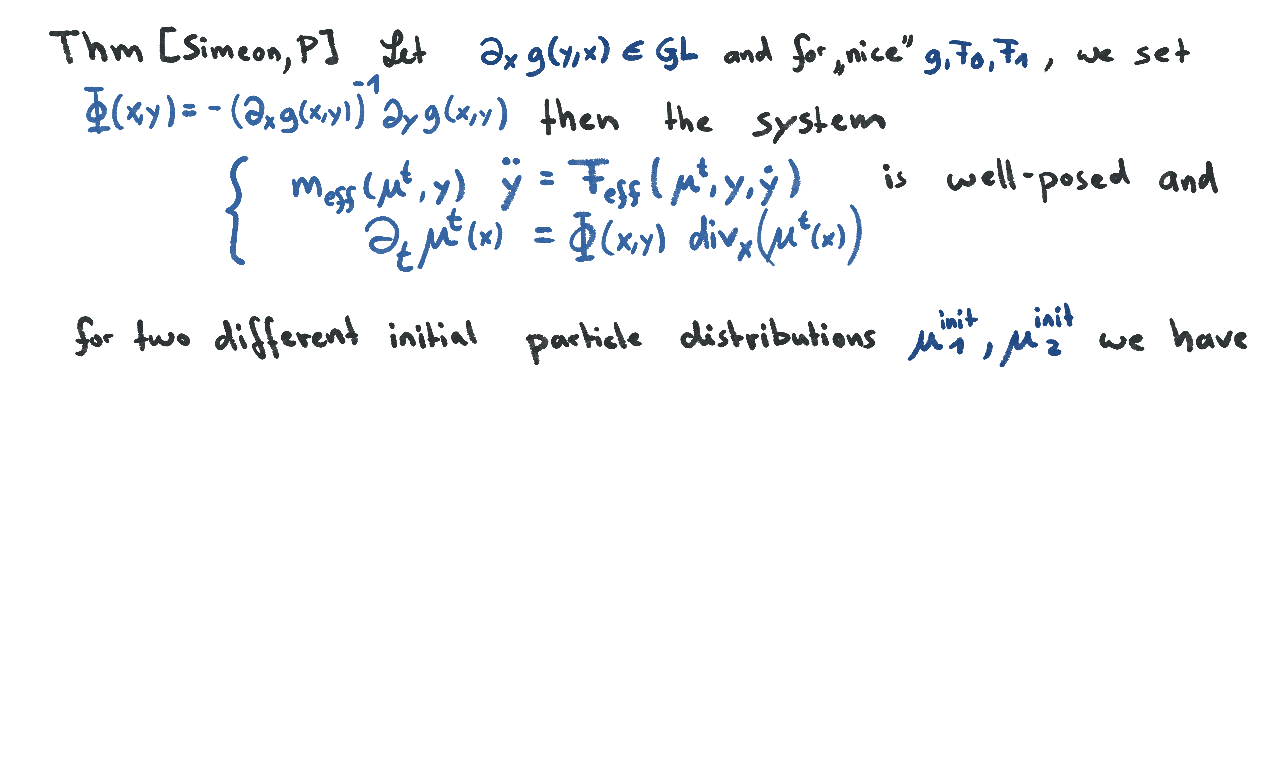 Thm [Simeon, P] Let ∂ₓ g(y,x) ∈ GL and for „nice" g, F₀, F₁, we set
Φ(x,y) = - (∂ₓg(x,y))⁻¹ ∂ᵧ g(x,y) then the system
{ m_eff(μᵗ, y) ÿ = F_eff(μᵗ, y, ẏ) is well-posed and
∂ₜ μᵗ(x) = Φ(x,y) divₓ(μᵗ(x))
for two different initial particle distributions μ₁^init, μ₂^init we have